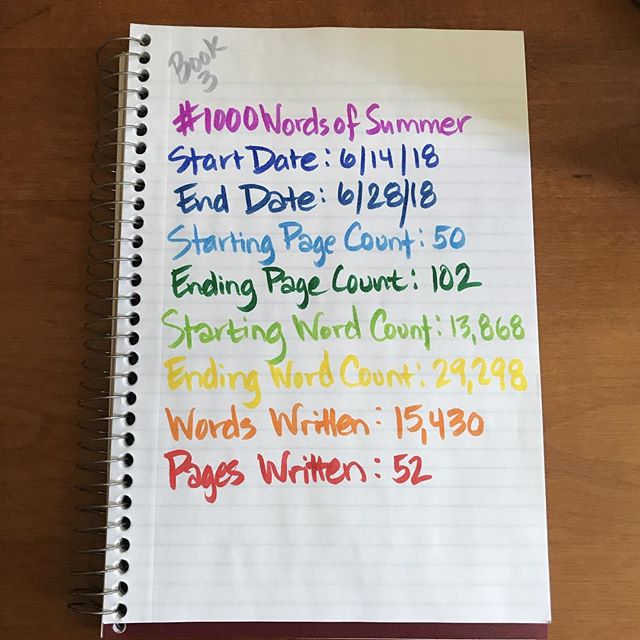 Book
3
#1000WordsofSummer
Start Date: 6/14/18
End Date: 6/28/18
Starting Page Count: 50
Ending Page Count: 102
Starting Word Count: 13,868
Ending Word Count: 29,298
Words Written: 15,430
Pages Written: 52